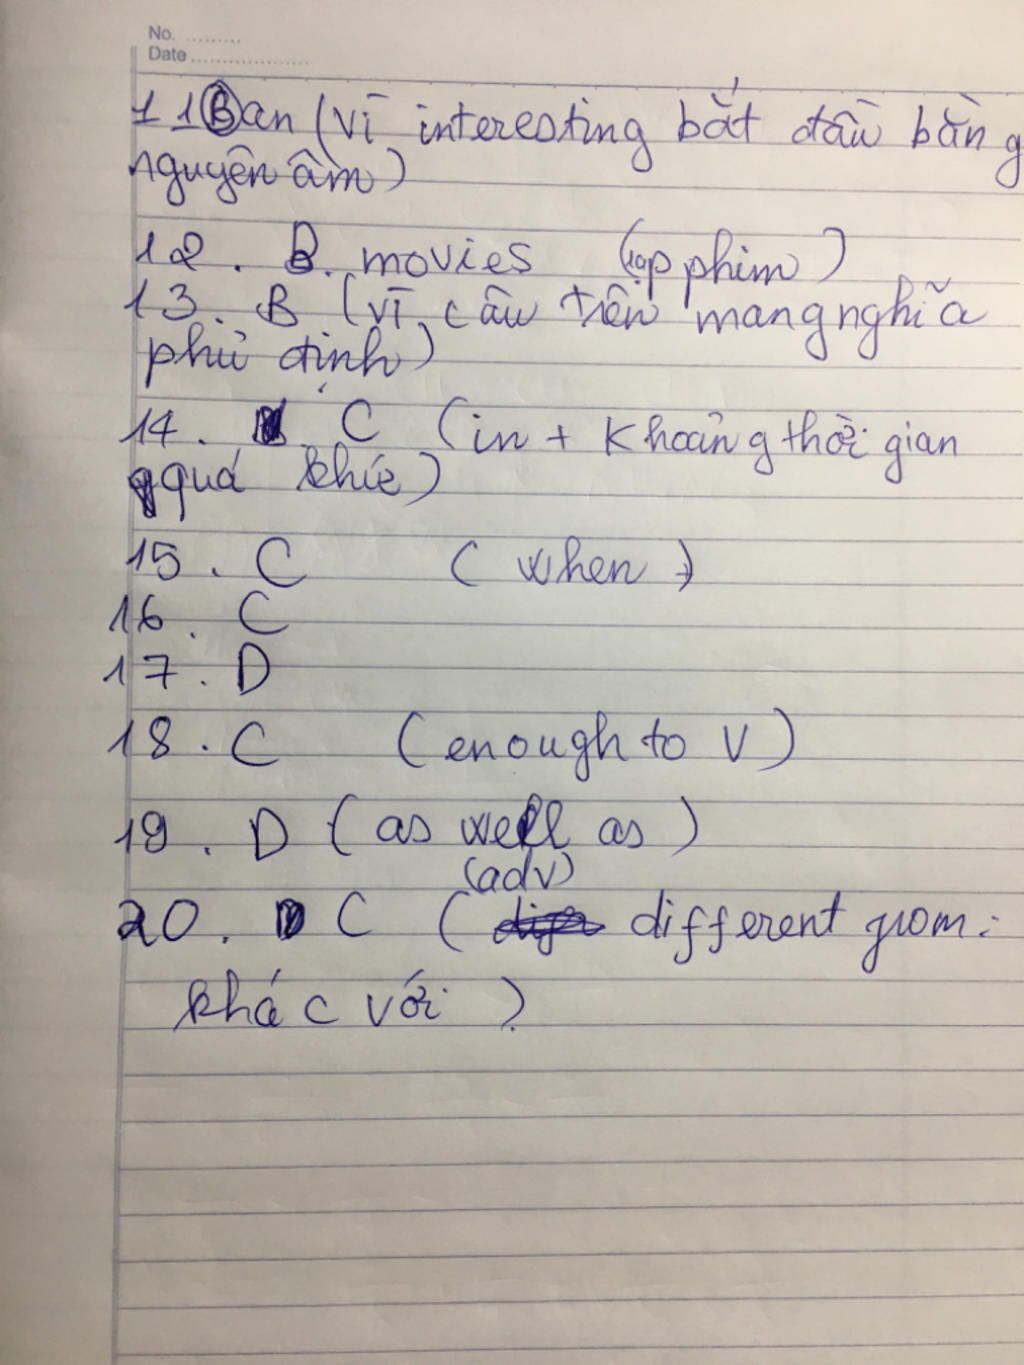 No. .........
Date ...................
11 B an (vì interesting bắt đầu bằng
nguyên âm)
12. B. movies (rạp phim)
13. B (vì câu trên mang nghĩa
phủ định)
14. C (in + khoảng thời gian
quá khứ)
15. C (when)
16. C
17. D
18. C (enough to V)
19. D (as well as)
(adv)
20. C (different from:
khác với)